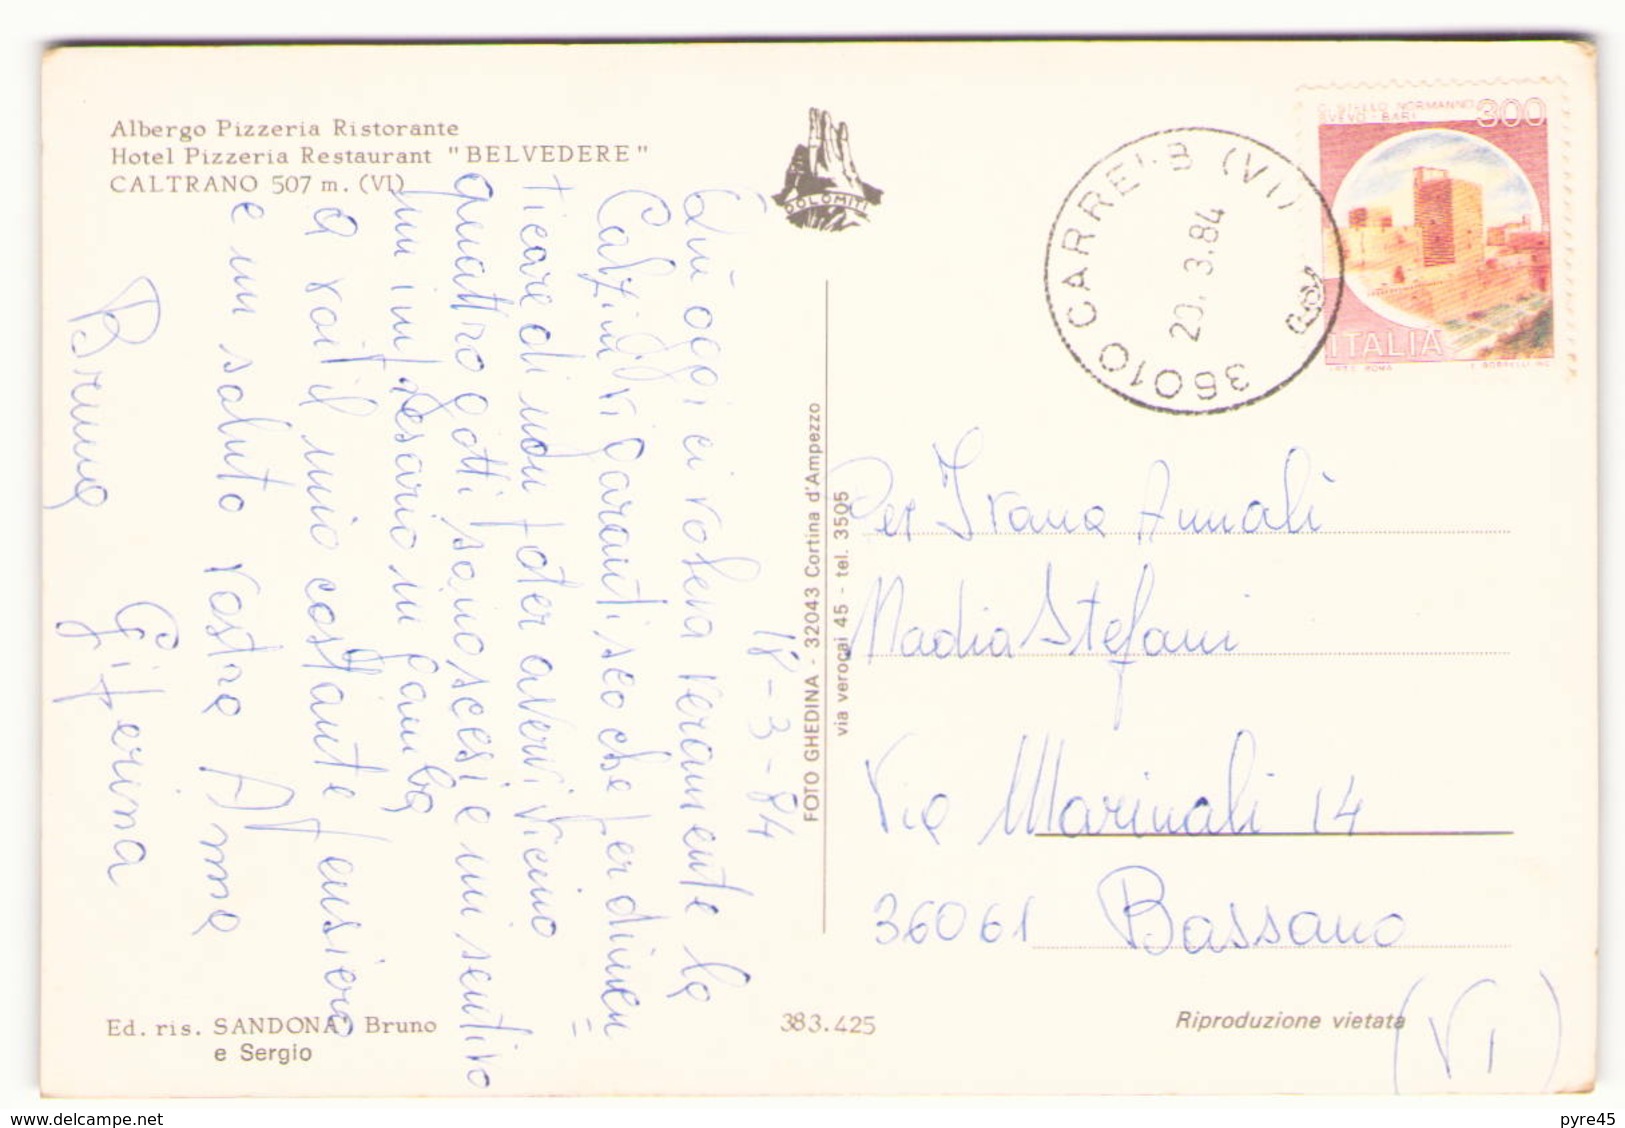 Albergo Pizzeria Ristorante
Hotel Pizzeria Restaurant "BELVEDERE"
CALTRANO 507 m. (VI)
DOLOMITI
36010 CARRE' (VI)
20. 3.84
300
NORMANNO
SVEVO - BARI
ITALIA
ROMA
18-3-84
Quì oggi ci voleva veramente la
Calzini vi garantisco che per dimen
=
ticare di non poter avervi vicino
quattro gotti sono scesi e mi sentivo
un in gamba
a voi il mio costante pensiero
e un saluto vostra Anna
Bruna Giferina
FOTO GHEDINA - 32043 Cortina d'Ampezzo
via verocai 45 - tel. 3505
Per Ivana Annali
Nadia Stefani
Via Marinali 14
36061 Bassano
(VI)
Ed. ris. SANDONA' Bruno
e Sergio
383.425
Riproduzione vietata
www.delcampe.net
pyre45